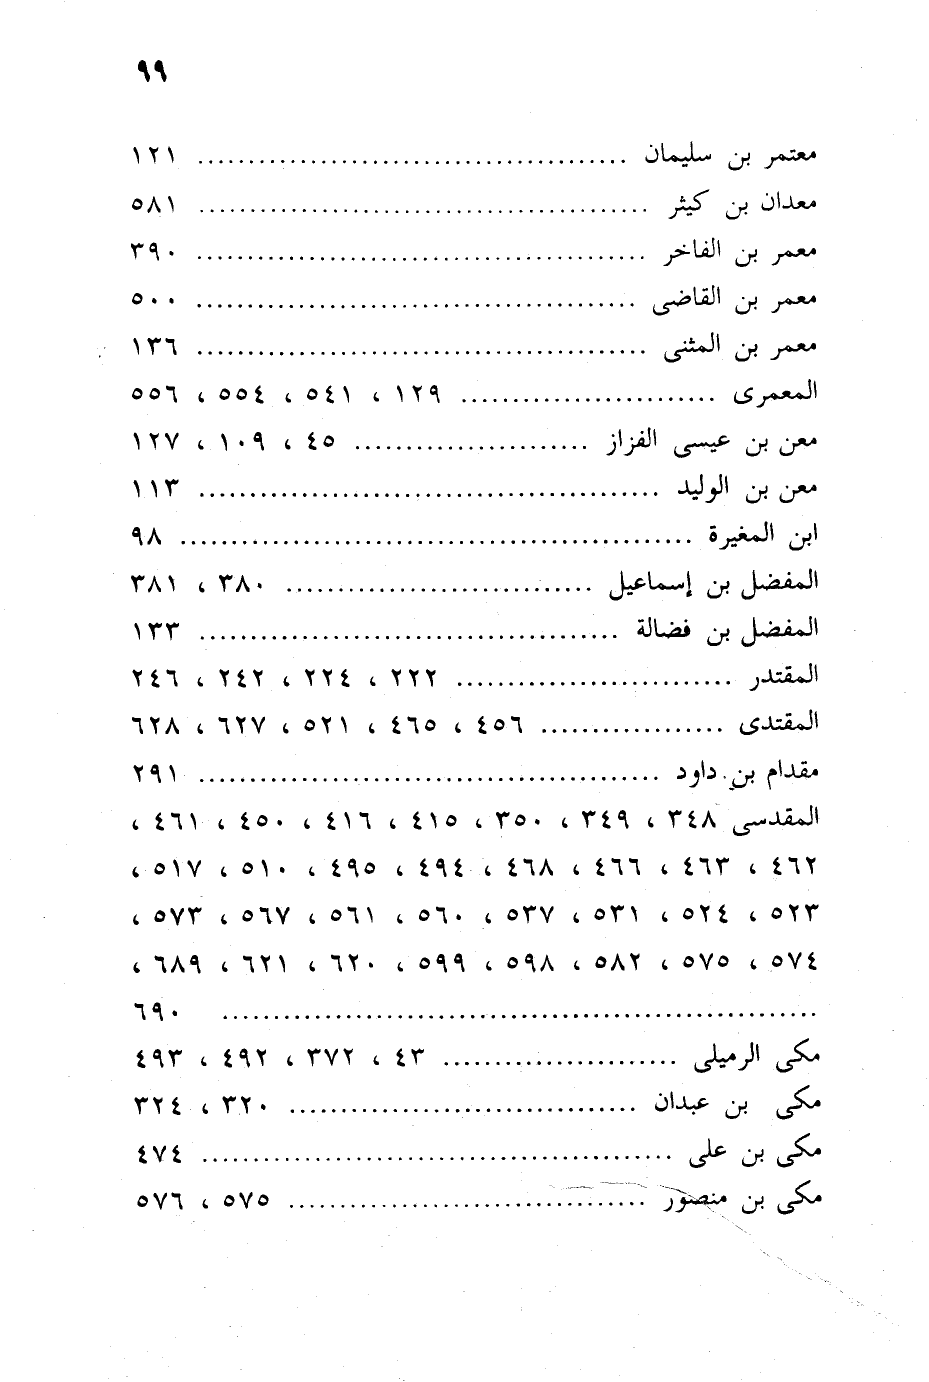 ٩٩
معتمر بن سليمان ........................................ ١٢١
معدان بن كيثر ........................................ ٥٨١
معمر بن الفاخر ........................................ ٣٩٠
معمر بن القاضى ........................................ ٥٠٠
معمر بن المثنى ........................................ ١٣٦
المعمرى ........................ ١٢٩ ، ٥٤١ ، ٥٥٤ ، ٥٥٦
معن بن عيسى الفزاز ...................... ٤٥ ، ١٠٩ ، ١٢٧
معن بن الوليد ........................................ ١١٣
ابن المغيرة ........................................ ٩٨
المفضل بن إسماعيل ............................ ٣٨٠ ، ٣٨١
المفضل بن فضالة ........................................ ١٣٣
المقتدر .......................... ٢٢٢ ، ٢٢٤ ، ٢٤٢ ، ٢٤٦
المقتدى .................. ٤٥٦ ، ٤٦٥ ، ٥٢١ ، ٦٢٧ ، ٦٢٨
مقدام بن داود ........................................ ٢٩١
المقدسى ٣٤٨ ، ٣٤٩ ، ٣٥٠ ، ٤١٥ ، ٤١٦ ، ٤٥٠ ، ٤٦١ ،
٤٦٢ ، ٤٦٣ ، ٤٦٦ ، ٤٦٨ ، ٤٩٤ ، ٤٩٥ ، ٥١٠ ، ٥١٧ ،
٥٢٣ ، ٥٢٤ ، ٥٣١ ، ٥٣٧ ، ٥٦٠ ، ٥٦١ ، ٥٦٧ ، ٥٧٣ ،
٥٧٤ ، ٥٧٥ ، ٥٨٢ ، ٥٩٨ ، ٥٩٩ ، ٦٢٠ ، ٦٢١ ، ٦٨٩ ،
........................................ ٦٩٠
مكى الرميلى ...................... ٤٣ ، ٣٧٢ ، ٤٩٢ ، ٤٩٣
مكى بن عبدان .................................. ٣٢٠ ، ٣٢٤
مكى بن على ........................................ ٤٧٤
مكى بن منصور .................................. ٥٧٥ ، ٥٧٦